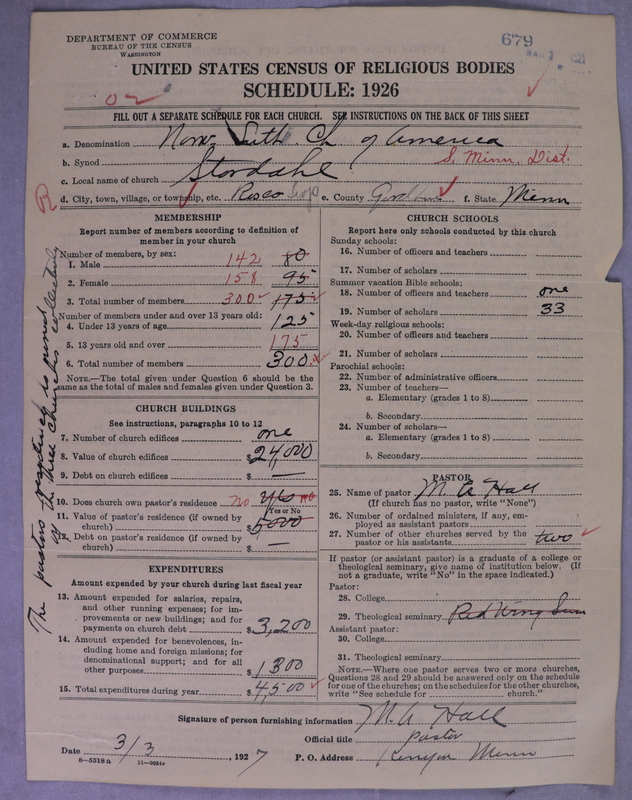 DEPARTMENT OF COMMERCE
BUREAU OF THE CENSUS
WASHINGTON
679
UNITED STATES CENSUS OF RELIGIOUS BODIES
SCHEDULE: 1926
FILL OUT A SEPARATE SCHEDULE FOR EACH CHURCH. SEE INSTRUCTIONS ON THE BACK OF THIS SHEET
a. Denomination Norw Luth. Ch. of America
b. Synod S. Minn. Dist.
c. Local name of church Stordahl
d. City, town, village, or township, etc. Rosco Twp e. County Goodhue f. State Minn
R
MEMBERSHIP
Report number of members according to definition of
member in your church
Number of members, by sex:
1. Male 142 80
2. Female 158 95
3. Total number of members 300 175
Number of members under and over 13 years old:
4. Under 13 years of age 125
5. 13 years old and over 175
6. Total number of members 300
NOTE.—The total given under Question 6 should be the
same as the total of males and females given under Question 3.
CHURCH BUILDINGS
See instructions, paragraphs 10 to 12
7. Number of church edifices one
8. Value of church edifices $ 24,000
9. Debt on church edifices $ —
10. Does church own pastor's residence no Yes no
(Yes or No)
11. Value of pastor's residence (if owned by
church) $ 5000
12. Debt on pastor's residence (if owned by
church) $ —
The pastors residence is owned
by the three churches collectively
EXPENDITURES
Amount expended by your church during last fiscal year
13. Amount expended for salaries, repairs,
and other running expenses; for im-
provements or new buildings; and for
payments on church debt $ 3,200
14. Amount expended for benevolences, in-
cluding home and foreign missions; for
denominational support; and for all
other purposes $ 1300
15. Total expenditures during year $ 4,500
CHURCH SCHOOLS
Report here only schools conducted by this church
Sunday schools:
16. Number of officers and teachers
17. Number of scholars
Summer vacation Bible schools:
18. Number of officers and teachers one
19. Number of scholars 33
Week-day religious schools:
20. Number of officers and teachers
21. Number of scholars
Parochial schools:
22. Number of administrative officers
23. Number of teachers—
a. Elementary (grades 1 to 8)
b. Secondary
24. Number of scholars—
a. Elementary (grades 1 to 8)
b. Secondary
PASTOR
25. Name of pastor M. A Hall
(If church has no pastor, write "None")
26. Number of ordained ministers, if any, em-
ployed as assistant pastors
27. Number of other churches served by the
pastor or his assistants two
If pastor (or assistant pastor) is a graduate of a college or
theological seminary, give name of institution below. (If
not a graduate, write "No" in the space indicated.)
Pastor:
28. College
29. Theological seminary Red Wing Sem
Assistant pastor:
30. College
31. Theological seminary
NOTE.—Where one pastor serves two or more churches,
Questions 28 and 29 should be answered only on the schedule
for one of the churches; on the schedules for the other churches,
write "See schedule for church."
Signature of person furnishing information M. A Hall
Official title pastor
Date 3/3, 1927 P. O. Address Kenyon Minn
8-5518a 11-9034